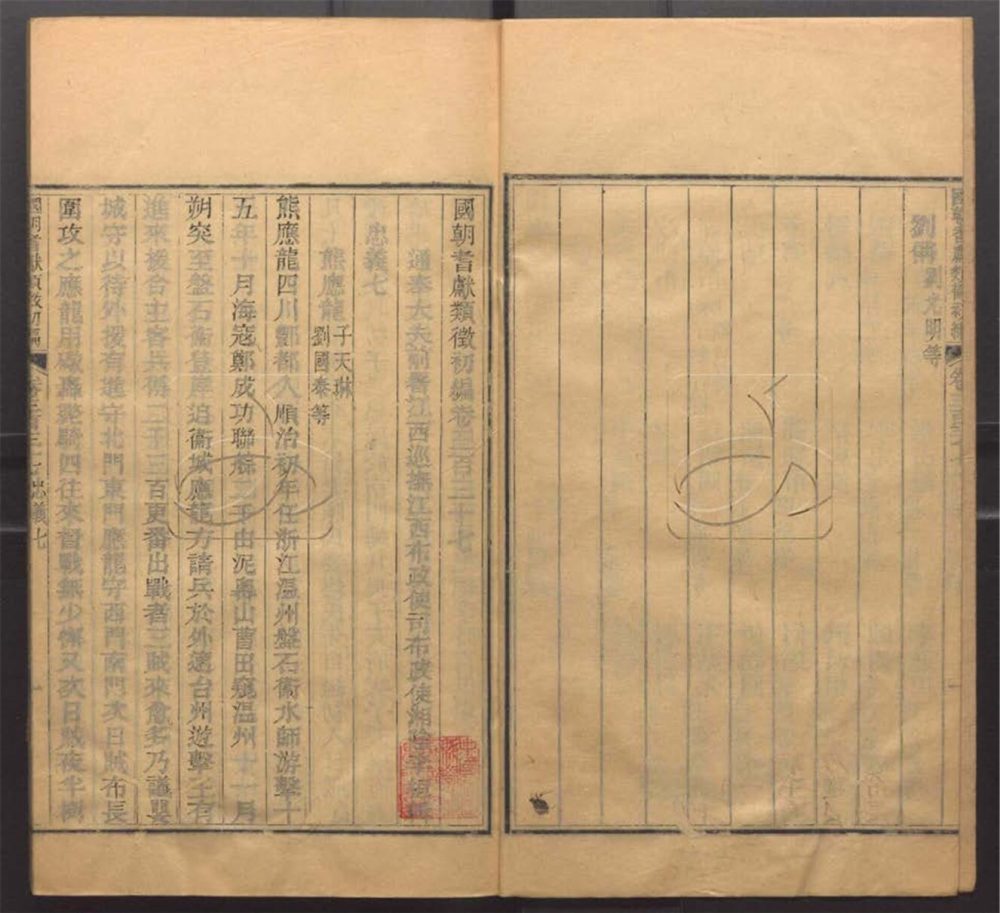 劉佛 劉光明等
國朝耆獻類徵初編卷三百三十七
通奉大夫前署江西巡撫江西布政使司布政使湘陰李
忠義七
熊應龍 子天琳 劉國泰等
熊應龍四川酆都人順治初年任浙江溫州盤石衞水師游擊十
五年十月海寇鄭成功聯艅二千由泥山曹田窺溫州十一月
朔突至盤石衞登岸迫衞城應龍方請兵於外適台州遊擊王有
進來援合主客兵僅二千三百更番出戰者三賊來愈多乃議嬰
城守以待外援有進守北門東門應龍守西門南門次日賊布長
圍攻之應龍用礮四往來督戰無少懈又次日賊夜半
國朝耆獻類徵初編 卷三百三十七 忠義七 一